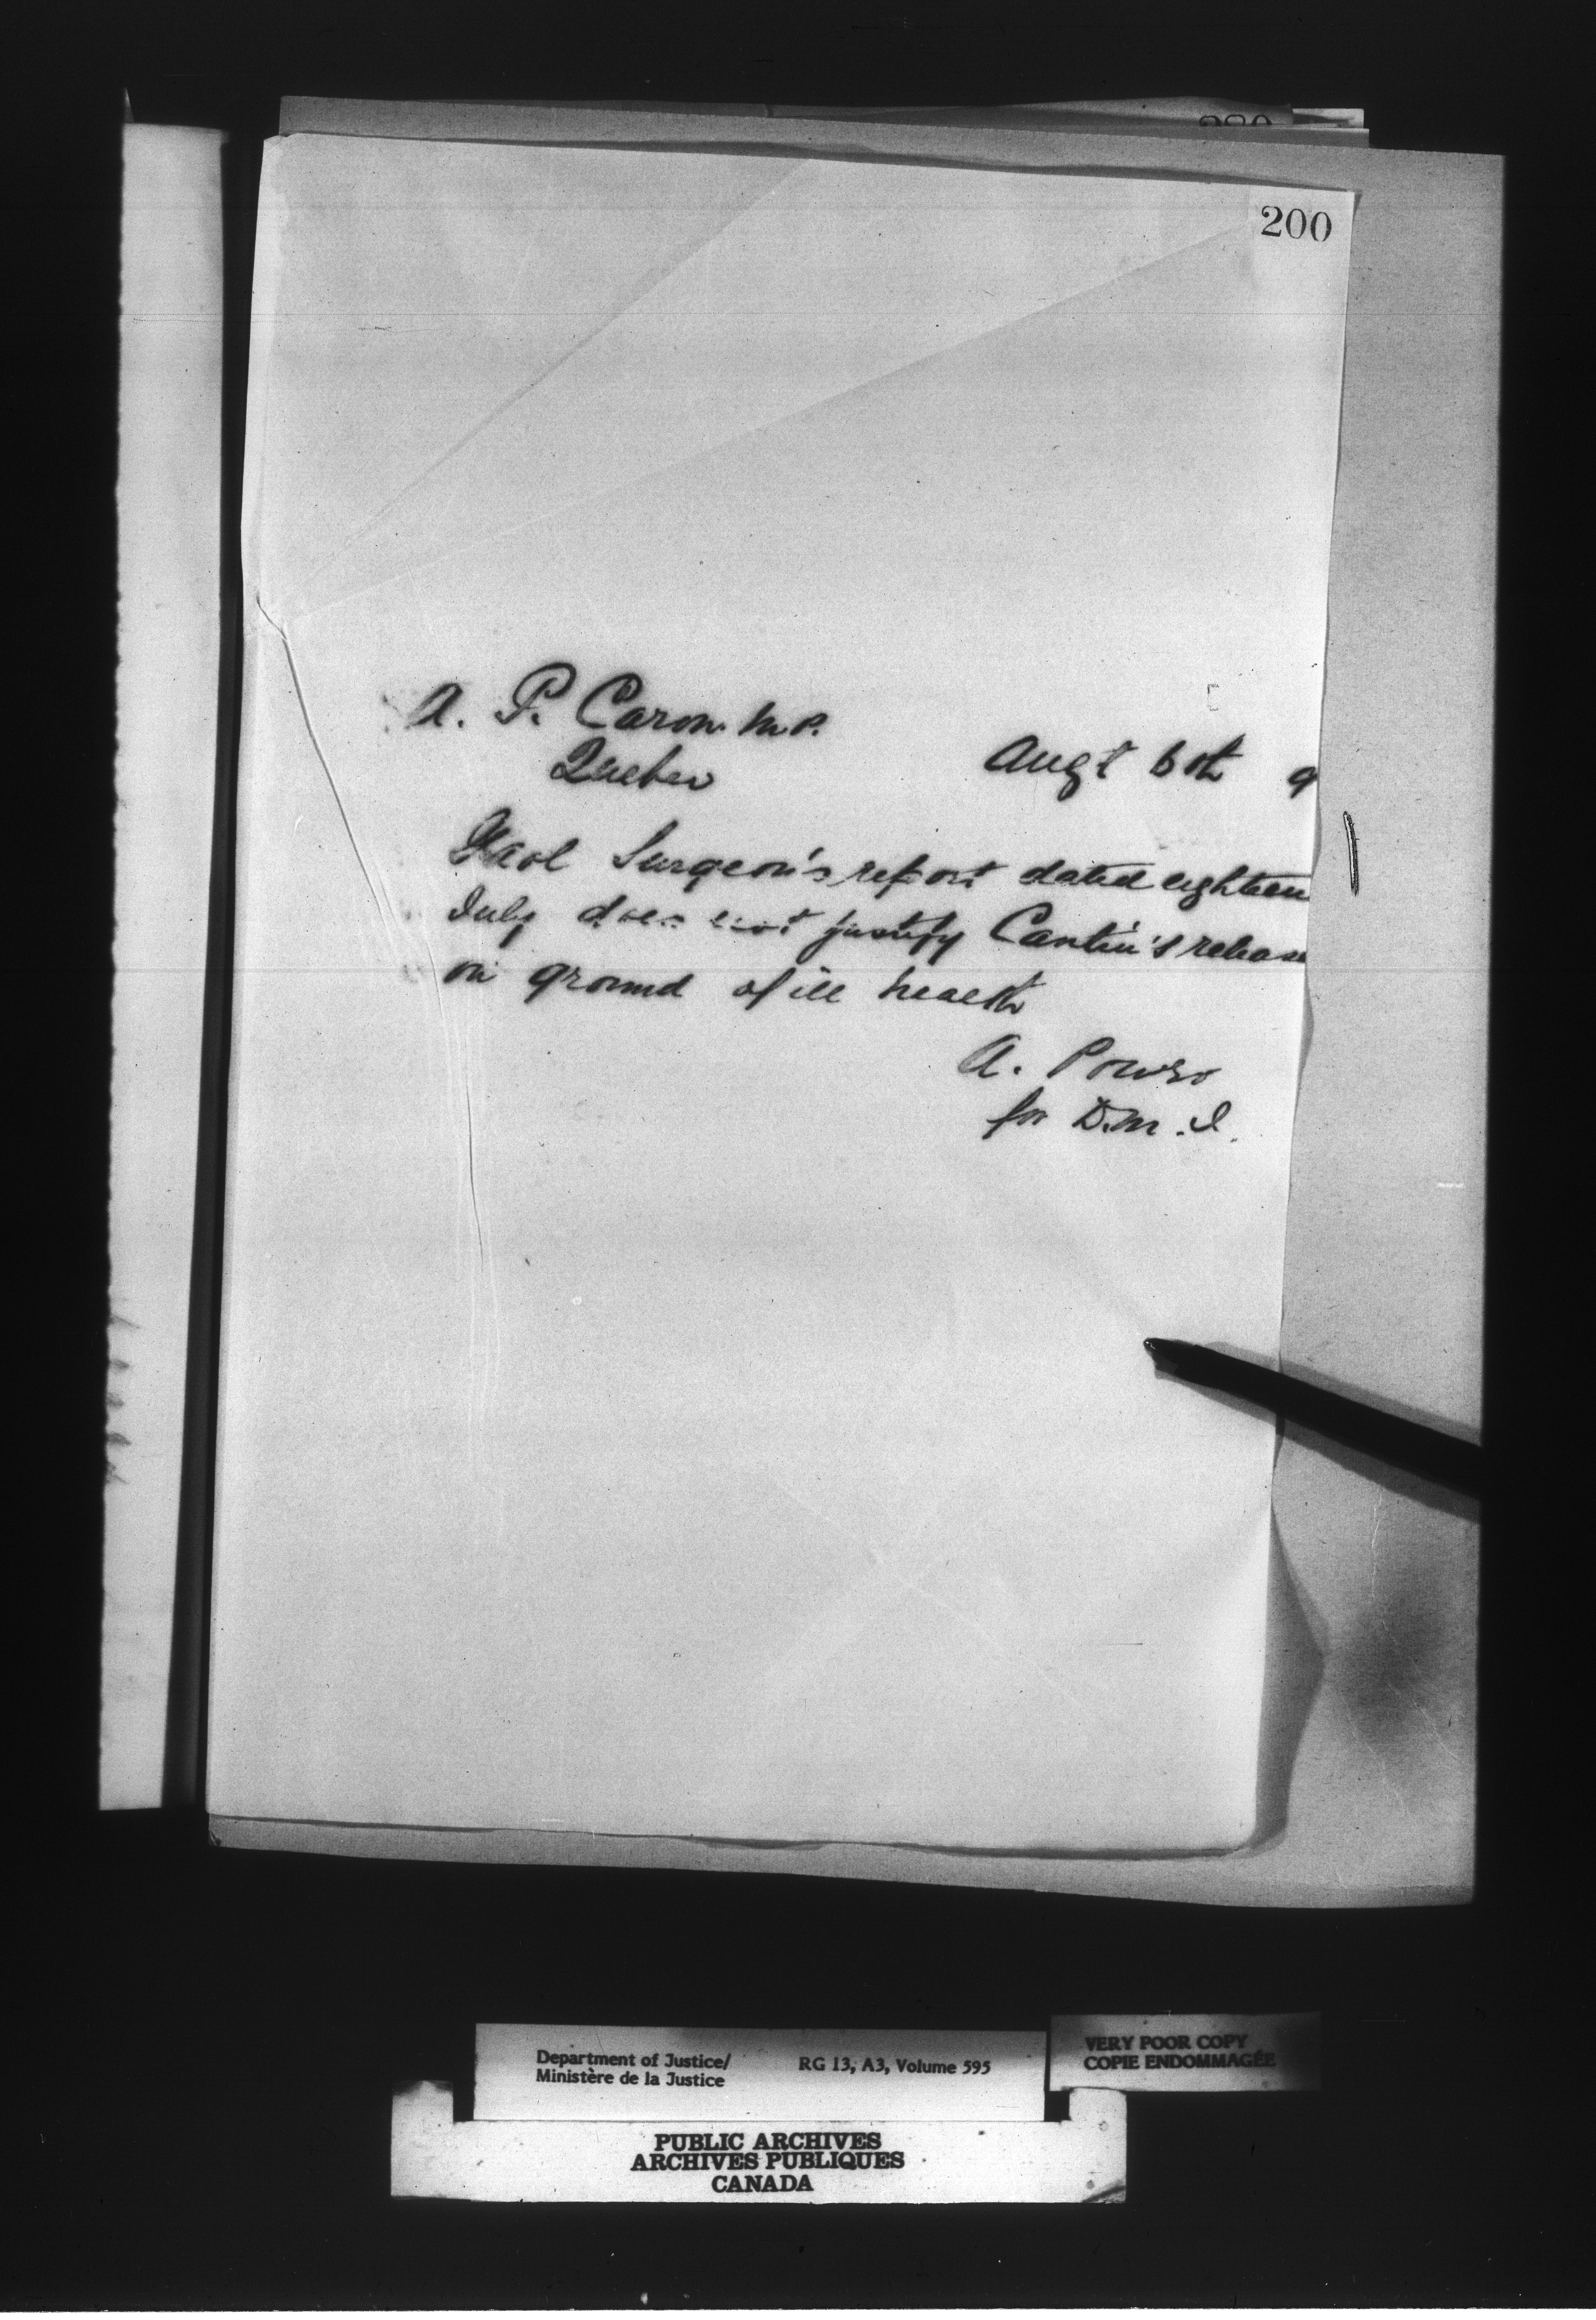 200
A. P. Caron M.P.
Quebec
Augt 6th 9
Gaol Surgeon's report dated eighteen
July does not justify Cantin's release
on ground of ill health
A. Power
for D.M.J.
Department of Justice/
Ministère de la Justice
RG 13, A3, Volume 595
VERY POOR COPY
COPIE ENDOMMAGÉE
PUBLIC ARCHIVES
ARCHIVES PUBLIQUES
CANADA